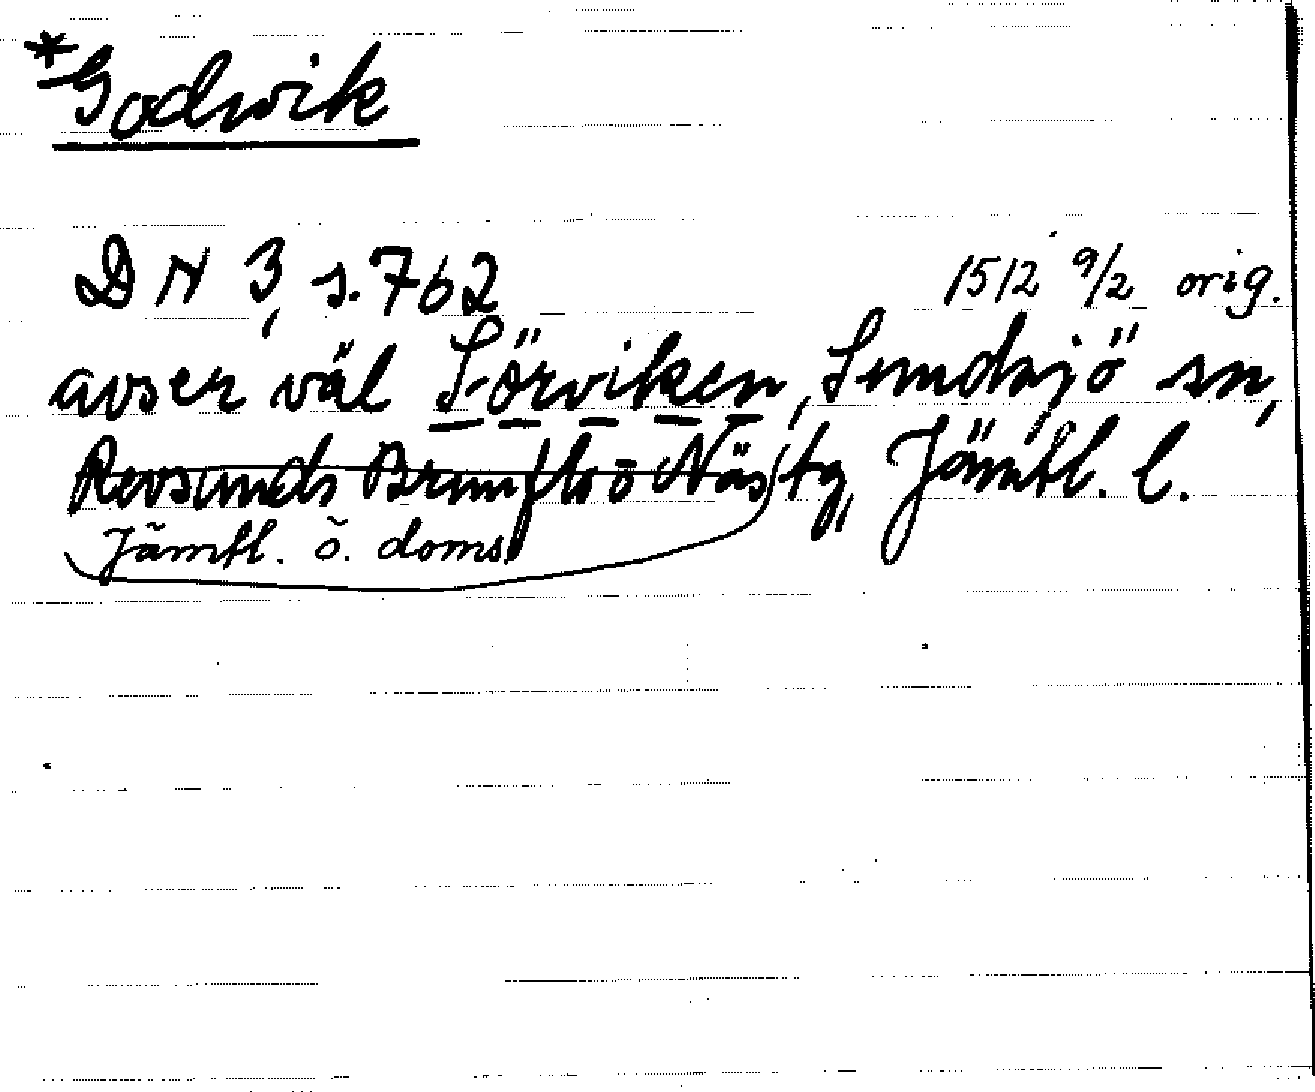 *Godwik
DN 3, s. 762 1512 9/2 orig.
avser väl Sörviken, Sundsjö sn,
Revsunds Brunflo o Näs tg, Jämtl. l.
Jämtl. ö. doms.